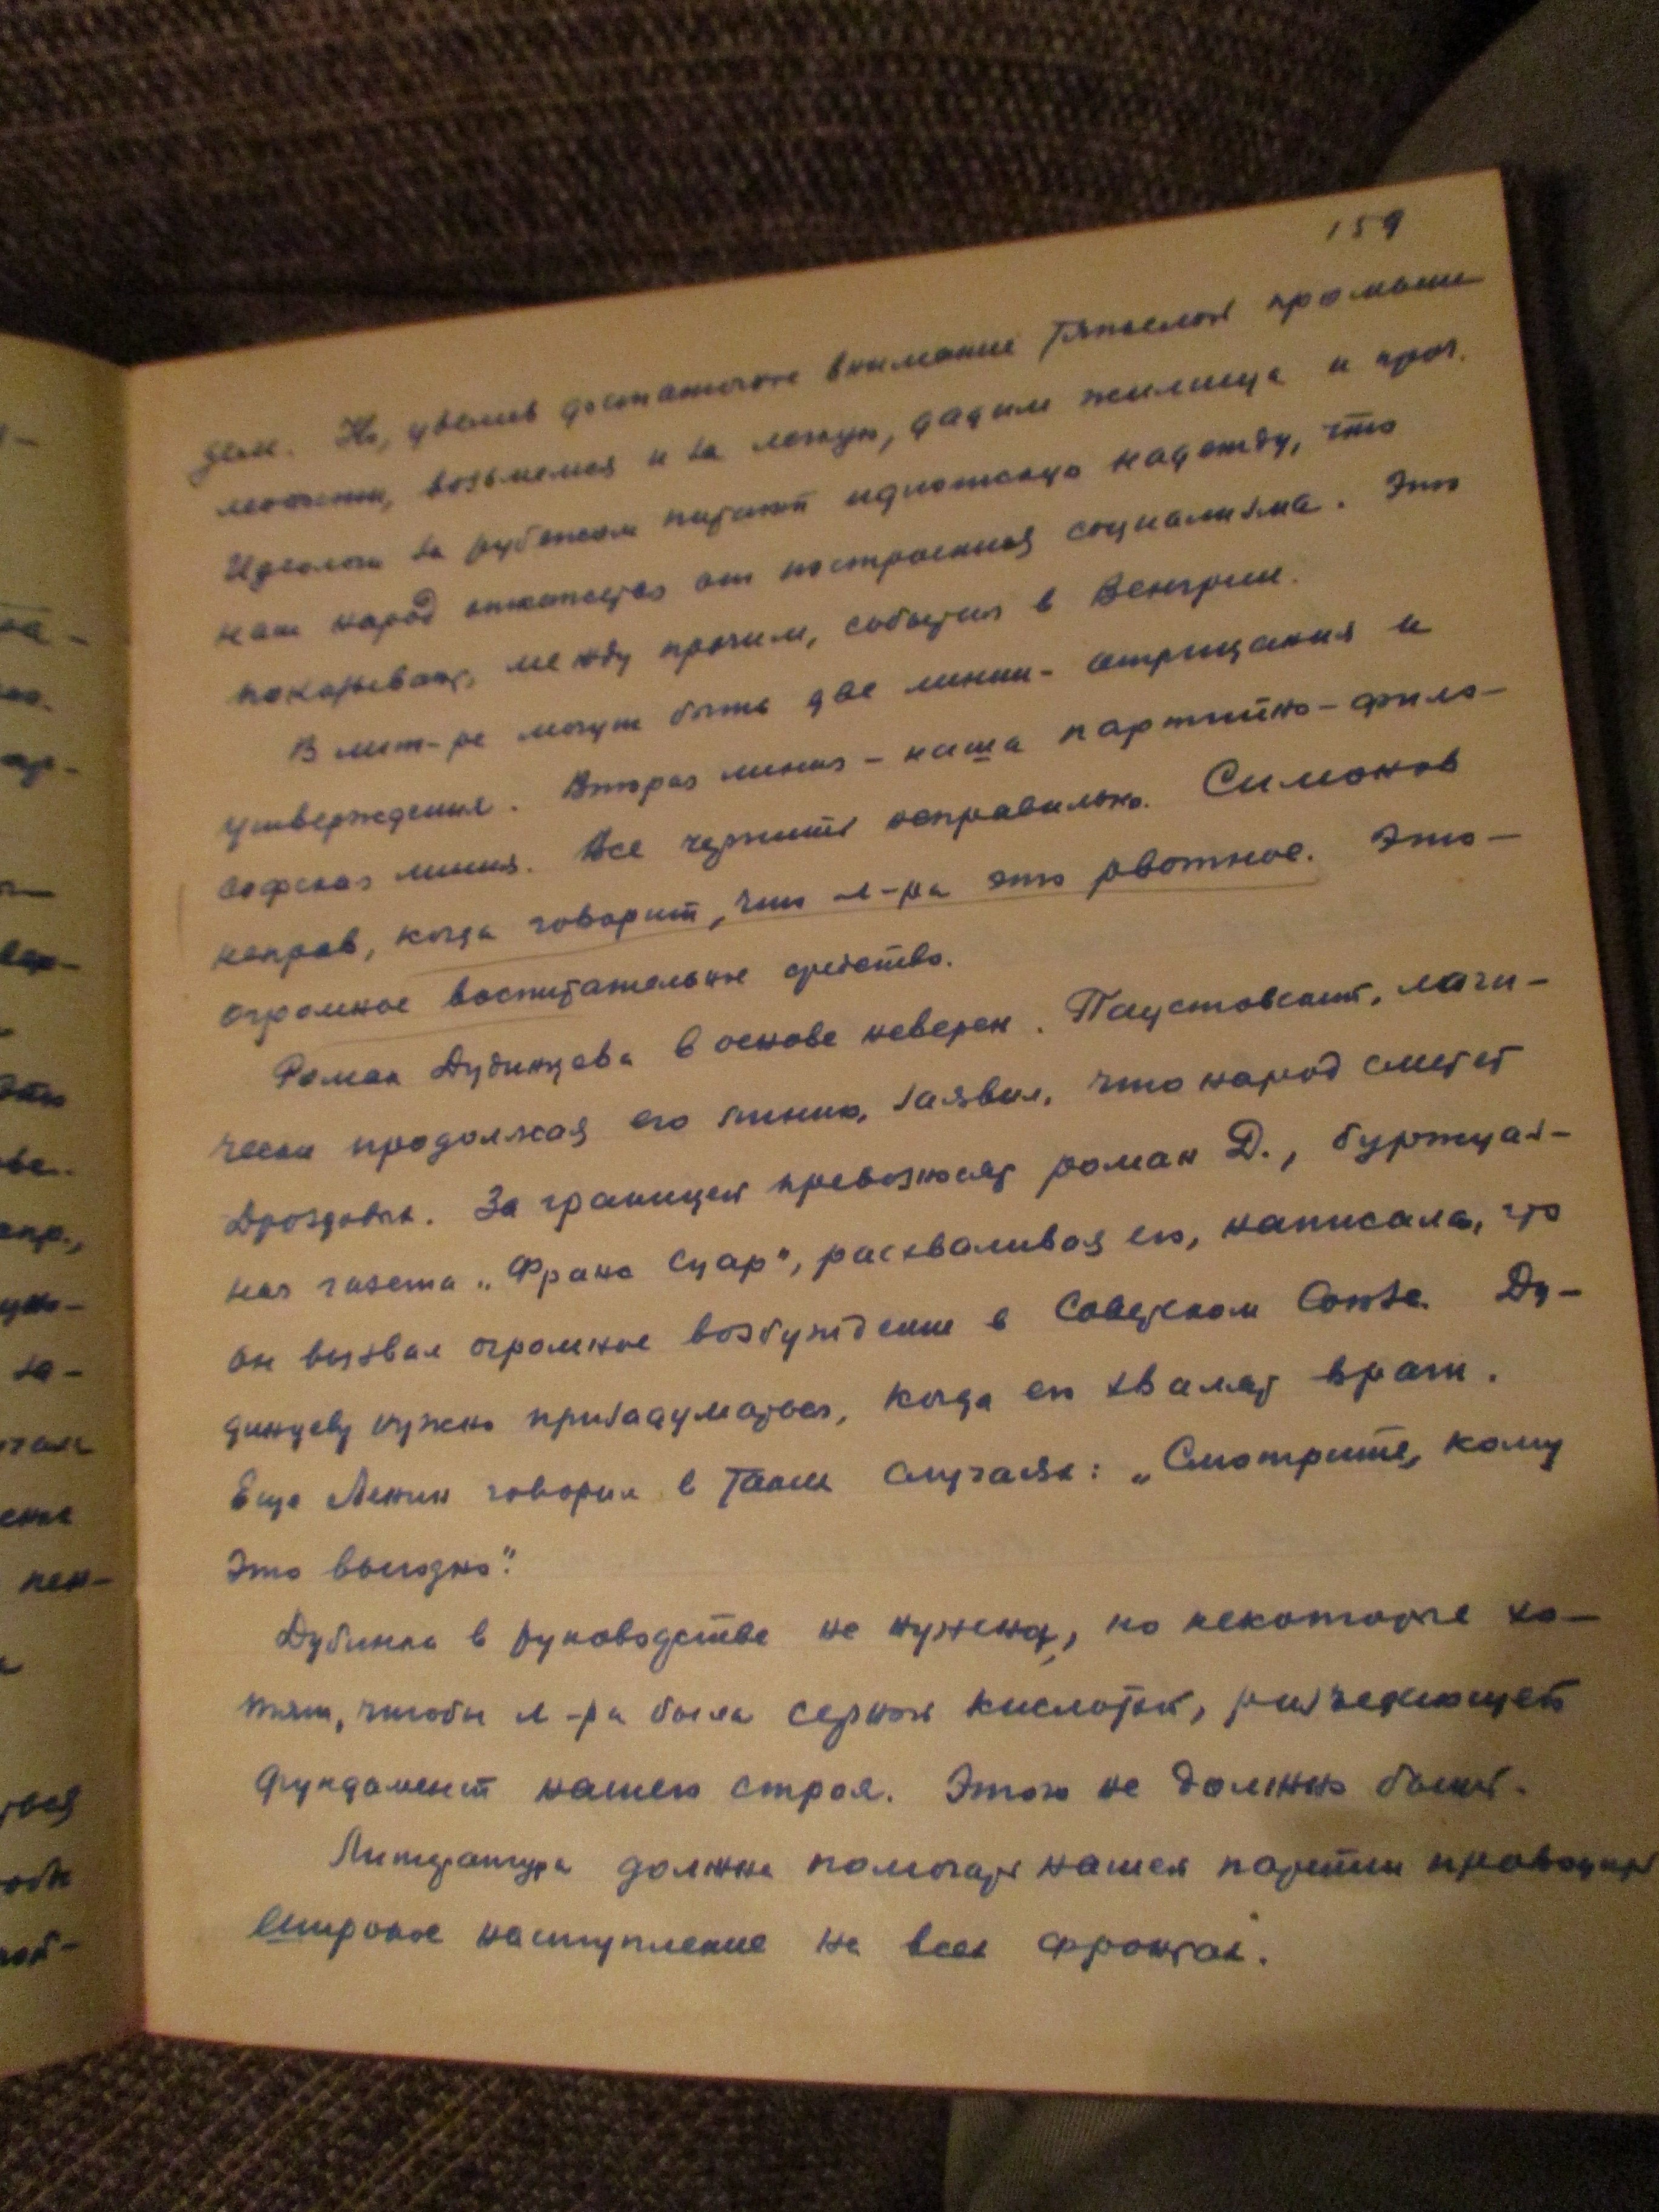 159
дем. Но, уделив достаточное внимание тяжелой промыш-
ленности, возьмемся и за легкую, дадим жилища и проч.
Идеологи за рубежом питают идиотскую надежду, что
наш народ откажется от построения социализма. Это
показывают, между прочим, события в Венгрии.
В лит-ре могут быть две линии - отрицания и
утверждения. Вторая линия - наша партийно-фило-
софская линия. Все чернить неправильно. Симонов
неправ, когда говорит, что л-ра это рвотное. Это -
огромное воспитательное средство.
Роман Дудинцева в основе неверен. Паустовский, логи-
чески продолжая его линию, заявил, что народ сметет
Дроздовых. За границей превозносят роман Д., буржуаз-
ная газета „Франс Суар", расхваливая его, написала, что
он вызвал огромное возбуждение в Советском Союзе. Ду-
динцеву нужно призадуматься, когда его хвалят враги.
Еще Ленин говорил в таких случаях: „Смотрите, кому
это выгодно".
Дубинка в руководстве не нужна, но некоторые хо-
тят, чтобы л-ра была серной кислотой, разъедающей
фундамент нашего строя. Этого не должно быть.
Литература должна помогать нашей партии проводить
широкое наступление на всех фронтах.